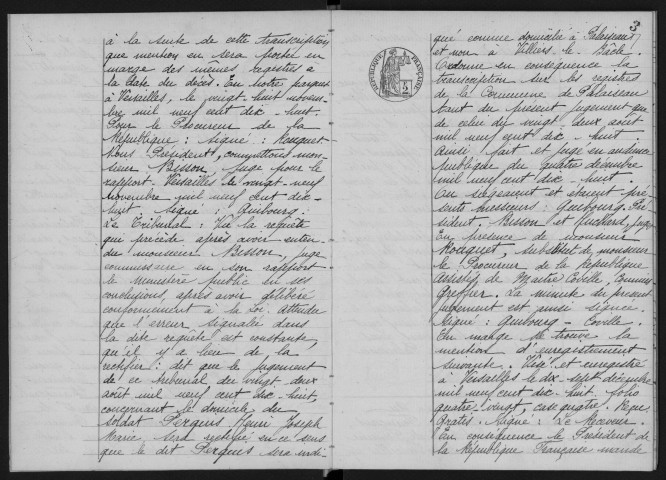 à la suite de cette transcription
que mention en sera portée en
marge des mêmes registres à
la date du décès. En notre parquet
à Versailles, le vingt-huit novem-
bre mil neuf cent dix-huit.
Pour le Procureur de la
République : Signé : Rocquet-
Nous Président, commettons mon-
sieur Bisson, Juge pour le
rapport. Versailles le vingt-neuf
novembre mil neuf cent dix-
huit Signé : Guibourg.
Le Tribunal : Vu la requête
qui précède après avoir enten-
du monsieur Bisson, juge
commissaire en son rapport
le Ministère public en ses
conclusions, après avoir délibéré
conformément à la Loi. Attendu
que l'erreur signalée dans
la dite requête est constante,
qu'il y a lieu de la
rectifier : dit que le jugement
de ce tribunal du vingt deux
août mil neuf cent dix-huit,
concernant le domicile du
soldat Pergues Henri Joseph
Marie sera rectifié en ce sens
que le dit Pergues sera indi-
3
qué comme domicilié à Palaiseau
et non à Villiers-le-Bâcle.
Ordonne en conséquence la
transcription sur les registres
de la Commune de Palaiseau
tant du présent jugement que
de celui du vingt-deux août
mil neuf cent dix-huit.
Ainsi fait et jugé en audience
publique du quatre décembre
mil neuf cent dix-huit.
Où siégeaient et étaient pré-
sents messieurs : Guibourg Pré-
sident, Bisson et juges
En présence de monsieur
Rocquet, substitut de monsieur
le Procureur de la République
assisté de Maître Coville, Commis
Greffier. La minute du présent
jugement est ainsi signée.
Signé : Guibourg - Coville.
En marge se trouve la
mention d'enregistrement
suivante. Visé et enregistré
à Versailles le dix sept décembre
mil neuf cent dix-huit folio
quatre vingt, case quatre. Reçu
Gratis. Signé : Le Receveur.
En conséquence le Président de
la République Française mande
RÉPUBLIQUE FRANÇAISE